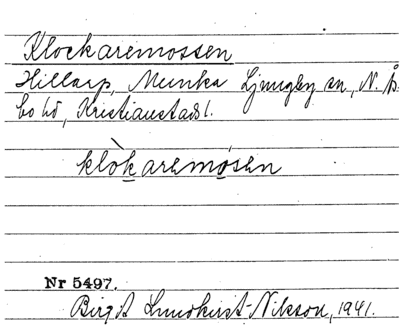 Klockaremossen
Hillarp, Munka Ljungby sn, N. Ås-
bo hd, Kristianstads l.
klòkaremosen
Nr 5497.
Birgit Lundkvist-Nilsson, 1941.